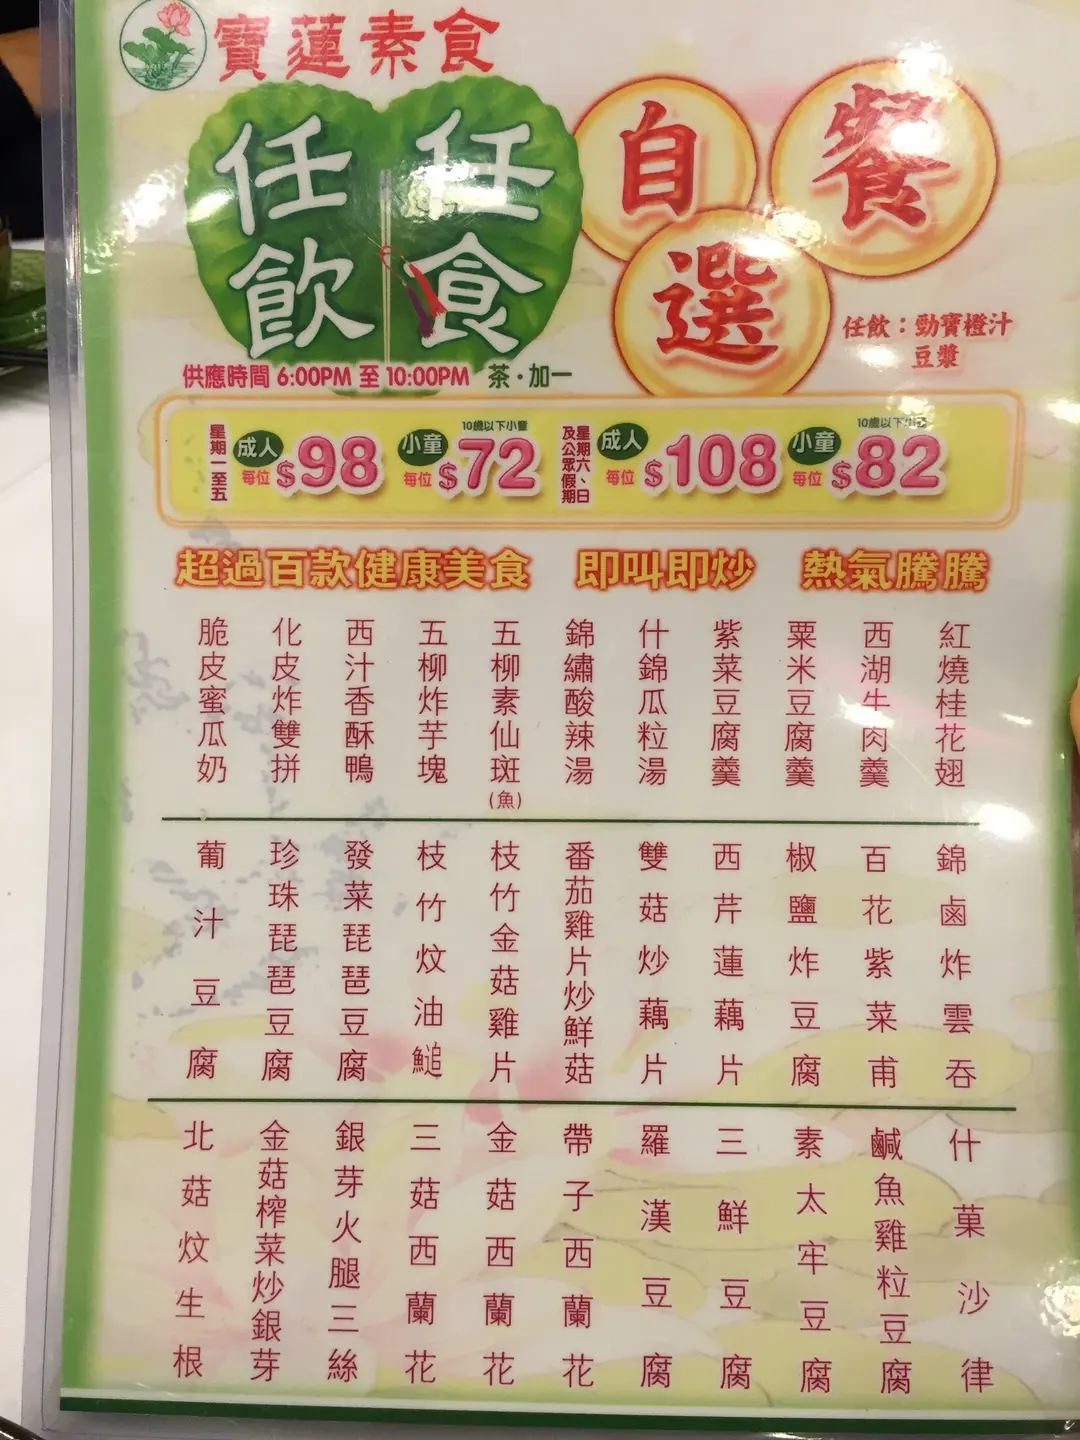 寶蓮素食
任食
任飲
自選餐
任飲：勁寶橙汁
豆漿
供應時間 6:00PM 至 10:00PM 茶·加一
星期一至五
成人
每位 $98
10歲以下小童
小童
每位 $72
星期六、日
及公眾假期
成人
每位 $108
10歲以下小童
小童
每位 $82
超過百款健康美食 即叫即炒 熱氣騰騰
紅燒桂花翅
西湖牛肉羹
粟米豆腐羹
紫菜豆腐羹
什錦瓜粒湯
錦繡酸辣湯
五柳素仙斑(魚)
五柳炸芋塊
西汁香酥鴨
化皮炸雙拼
脆皮蜜瓜奶
錦鹵炸雲吞
百花紫菜甫
椒鹽炸豆腐
西芹蓮藕片
雙菇炒藕片
番茄雞片炒鮮菇
枝竹金菇雞片
枝竹炆油䭔
發菜琵琶豆腐
珍珠琵琶豆腐
葡汁豆腐
什菓沙律
鹹魚雞粒豆腐
素太牢豆腐
三鮮豆腐
羅漢豆腐
帶子西蘭花
金菇西蘭花
三菇西蘭花
銀芽火腿三絲
金菇榨菜炒銀芽
北菇炆生根